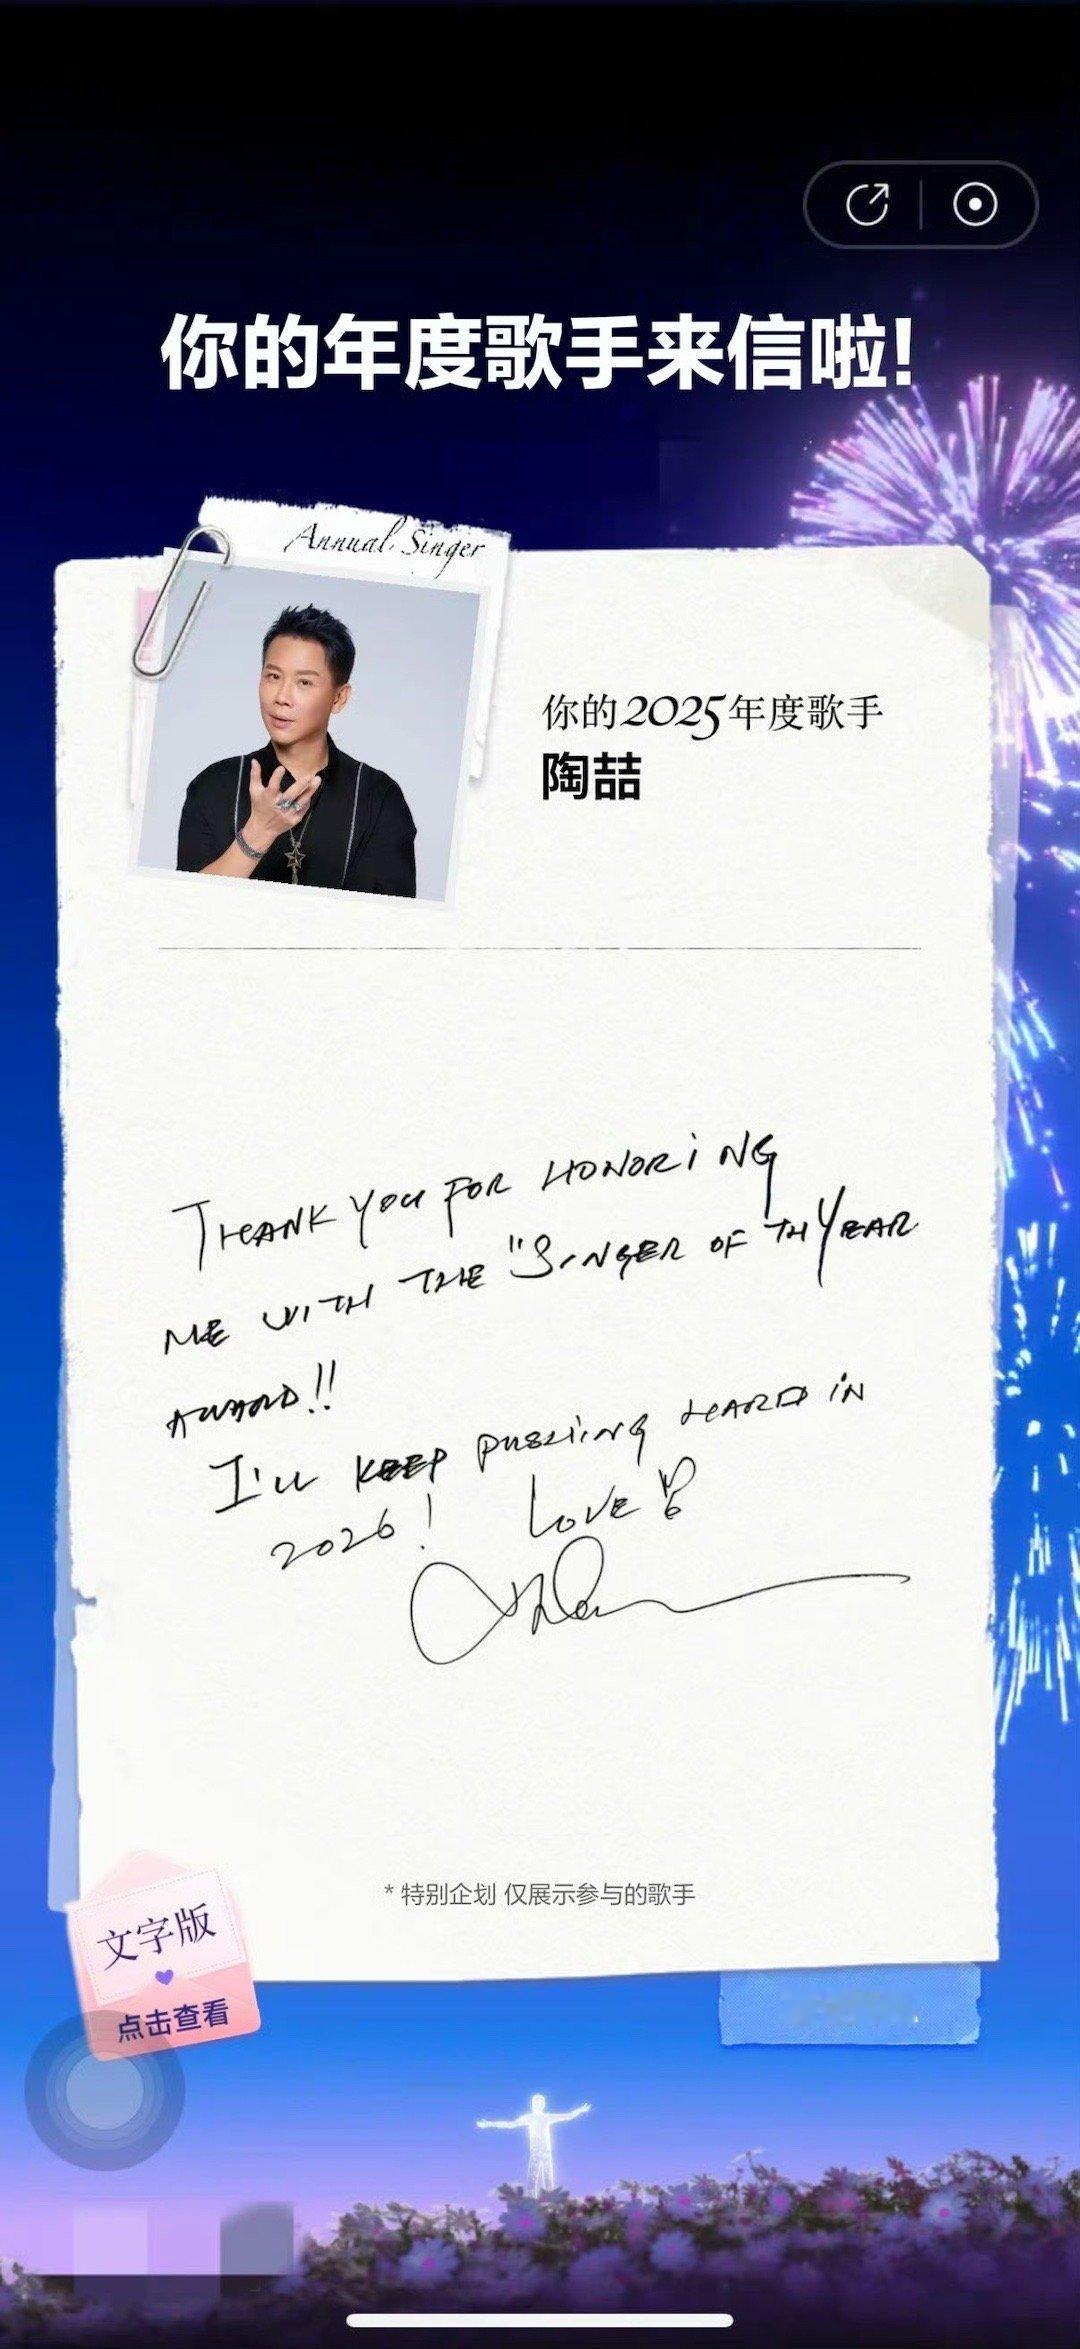 你的年度歌手来信啦!
Annual Singer
你的2025年度歌手
陶喆
THANK YOU FOR HONORING
ME WITH THE "SINGER OF TH YEAR
AWARD!!
I'LL KEEP PUSHING HARD IN
2026! LOVE
*特别企划 仅展示参与的歌手
文字版
点击查看